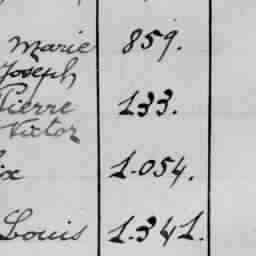 Marie 859.
Joseph
Pierre 133.
Victor
ix 1.054.
Louis 1.341.